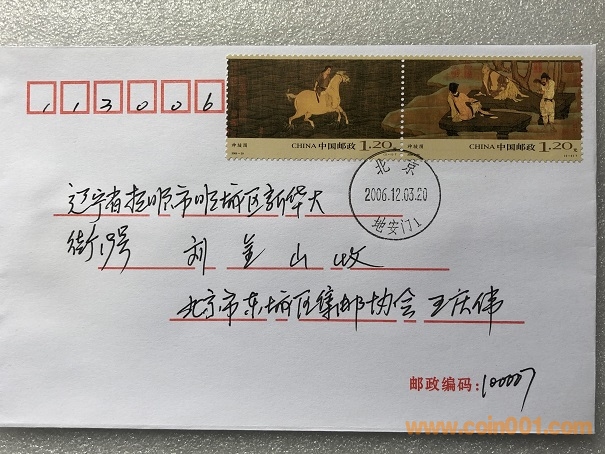 113006
神骏图
CHINA 中国邮政 1.20元
神骏图
CHINA 中国邮政 1.20元
北京
2006.12.03.20
地安门1
辽宁省抚顺市顺城区新华大
街19号 刘金山收
北京市东城区集邮协会 王庆伟
邮政编码:100007
www.coin001.com